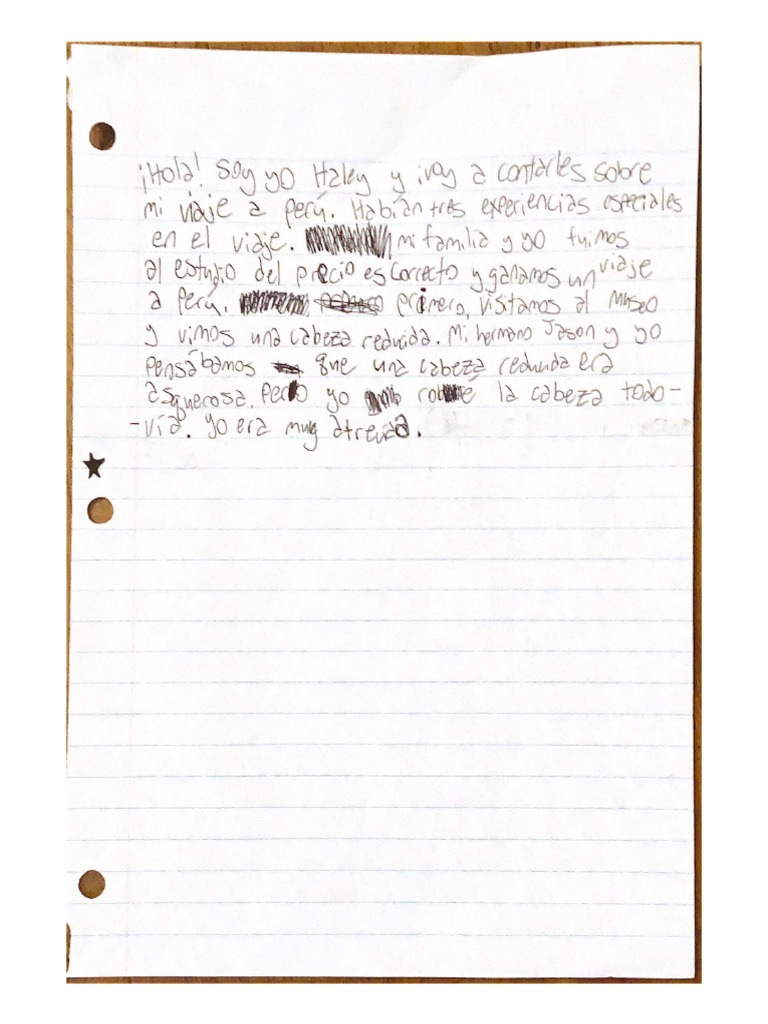 ¡Hola! Soy yo Haley y ¡voy a contarles sobre
mi viaje a Perú. Habían tres experiencias especiales
en el viaje. mi familia y yo fuimos
al estudio del precio es correcto y ganamos un viaje
a Perú. primero, vistamos al museo
y vimos una cabeza reducida. Mi hermano Jason y yo
pensábamos que una cabeza reducida era
asquerosa. Pero yo robé la cabeza todo-
-vía. Yo era muy atrevida.